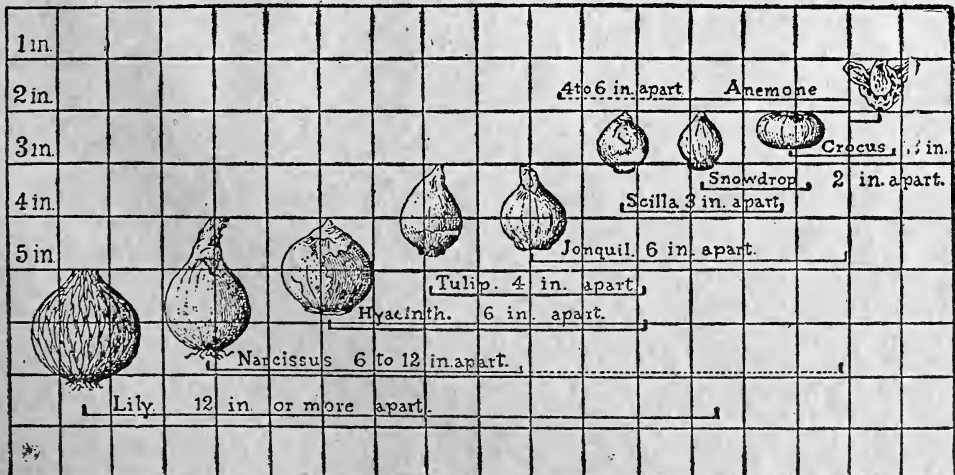 1 in.
2 in.
4 to 6 in. apart Anemone
3 in.
Crocus in.
Snowdrop 2 in. apart.
4 in.
Scilla 3 in. apart
5 in
Jonquil. 6 in. apart.
Tulip. 4 in. apart
Hyacinth. 6 in. apart.
Narcissus 6 to 12 in. apart.
Lily. 12 in. or more apart.